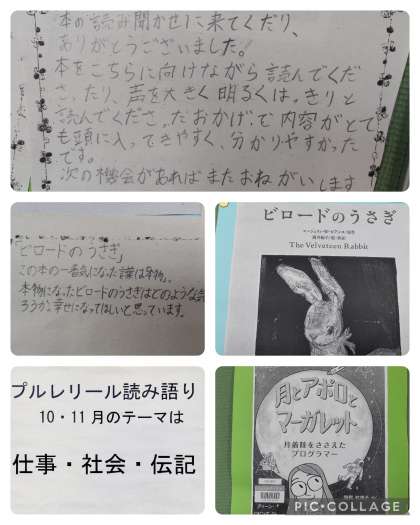 本の読み聞かせに来てくだり、
ありがとうございました!
本をこちらに向けながら読んでくだ
さったり、声を大きく明るくはっきりと
読んでくださったおかげで内容がとて
も頭に入ってきやすく、分かりやすかった
です。
次の機会があればまたおねがいします
「ビロードのうさぎ」
この本の一番気になった
本物になったビロードのうさぎはどのような
ろうか。幸せになってほしいと思っています。
ビロードのうさぎ
The Velveteen Rabbit
プルレリール読み語り
10・11月のテーマは
仕事・社会・伝記
月とアポロと
マーガレット
月着陸をささえた
プログラマー
PIC•COLLAGE